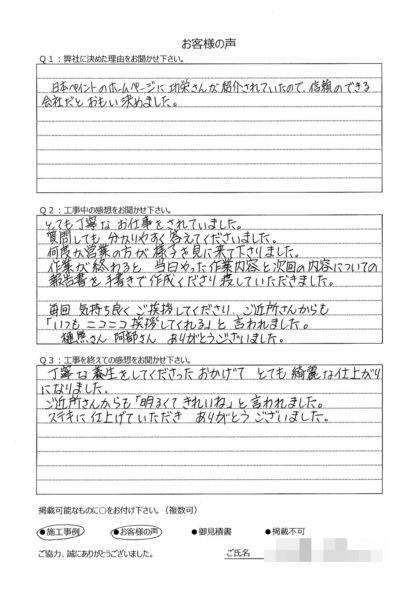 お客様の声
Q1：弊社に決めた理由をお聞かせ下さい。
日本ペイントのホームページに功栄さんが紹介されていたので、信頼のできる
会社だとおもい決めました。
Q2：工事中の感想をお聞かせ下さい。
とても丁寧なお仕事をされていました。
質問しても分かりやすく答えてくださいました。
何度か営業の方が様子を見に来て下さりました。
作業が終わると当日やった作業内容と次回の内容についての
報告書を手書きで作成くださり渡していただきました。
毎回気持ち良くご挨拶してくださり、ご近所さんからも
「いつもニコニコ挨拶してくれる」と言われました。
さん 阿部さん ありがとうございました。
Q3：工事を終えての感想をお聞かせ下さい。
丁寧な養生をしてくださったおかげで とても綺麗な仕上がり
になりました。
ご近所さんからも「明るくてきれいね」と言われました。
ステキに仕上げていただき ありがとうございました。
掲載可能なものに○をお付け下さい。（複数可）
●施工事例 ●お客様の声 ●御見積書 ●掲載不可
ご協力、誠にありがとうございました。 ご氏名